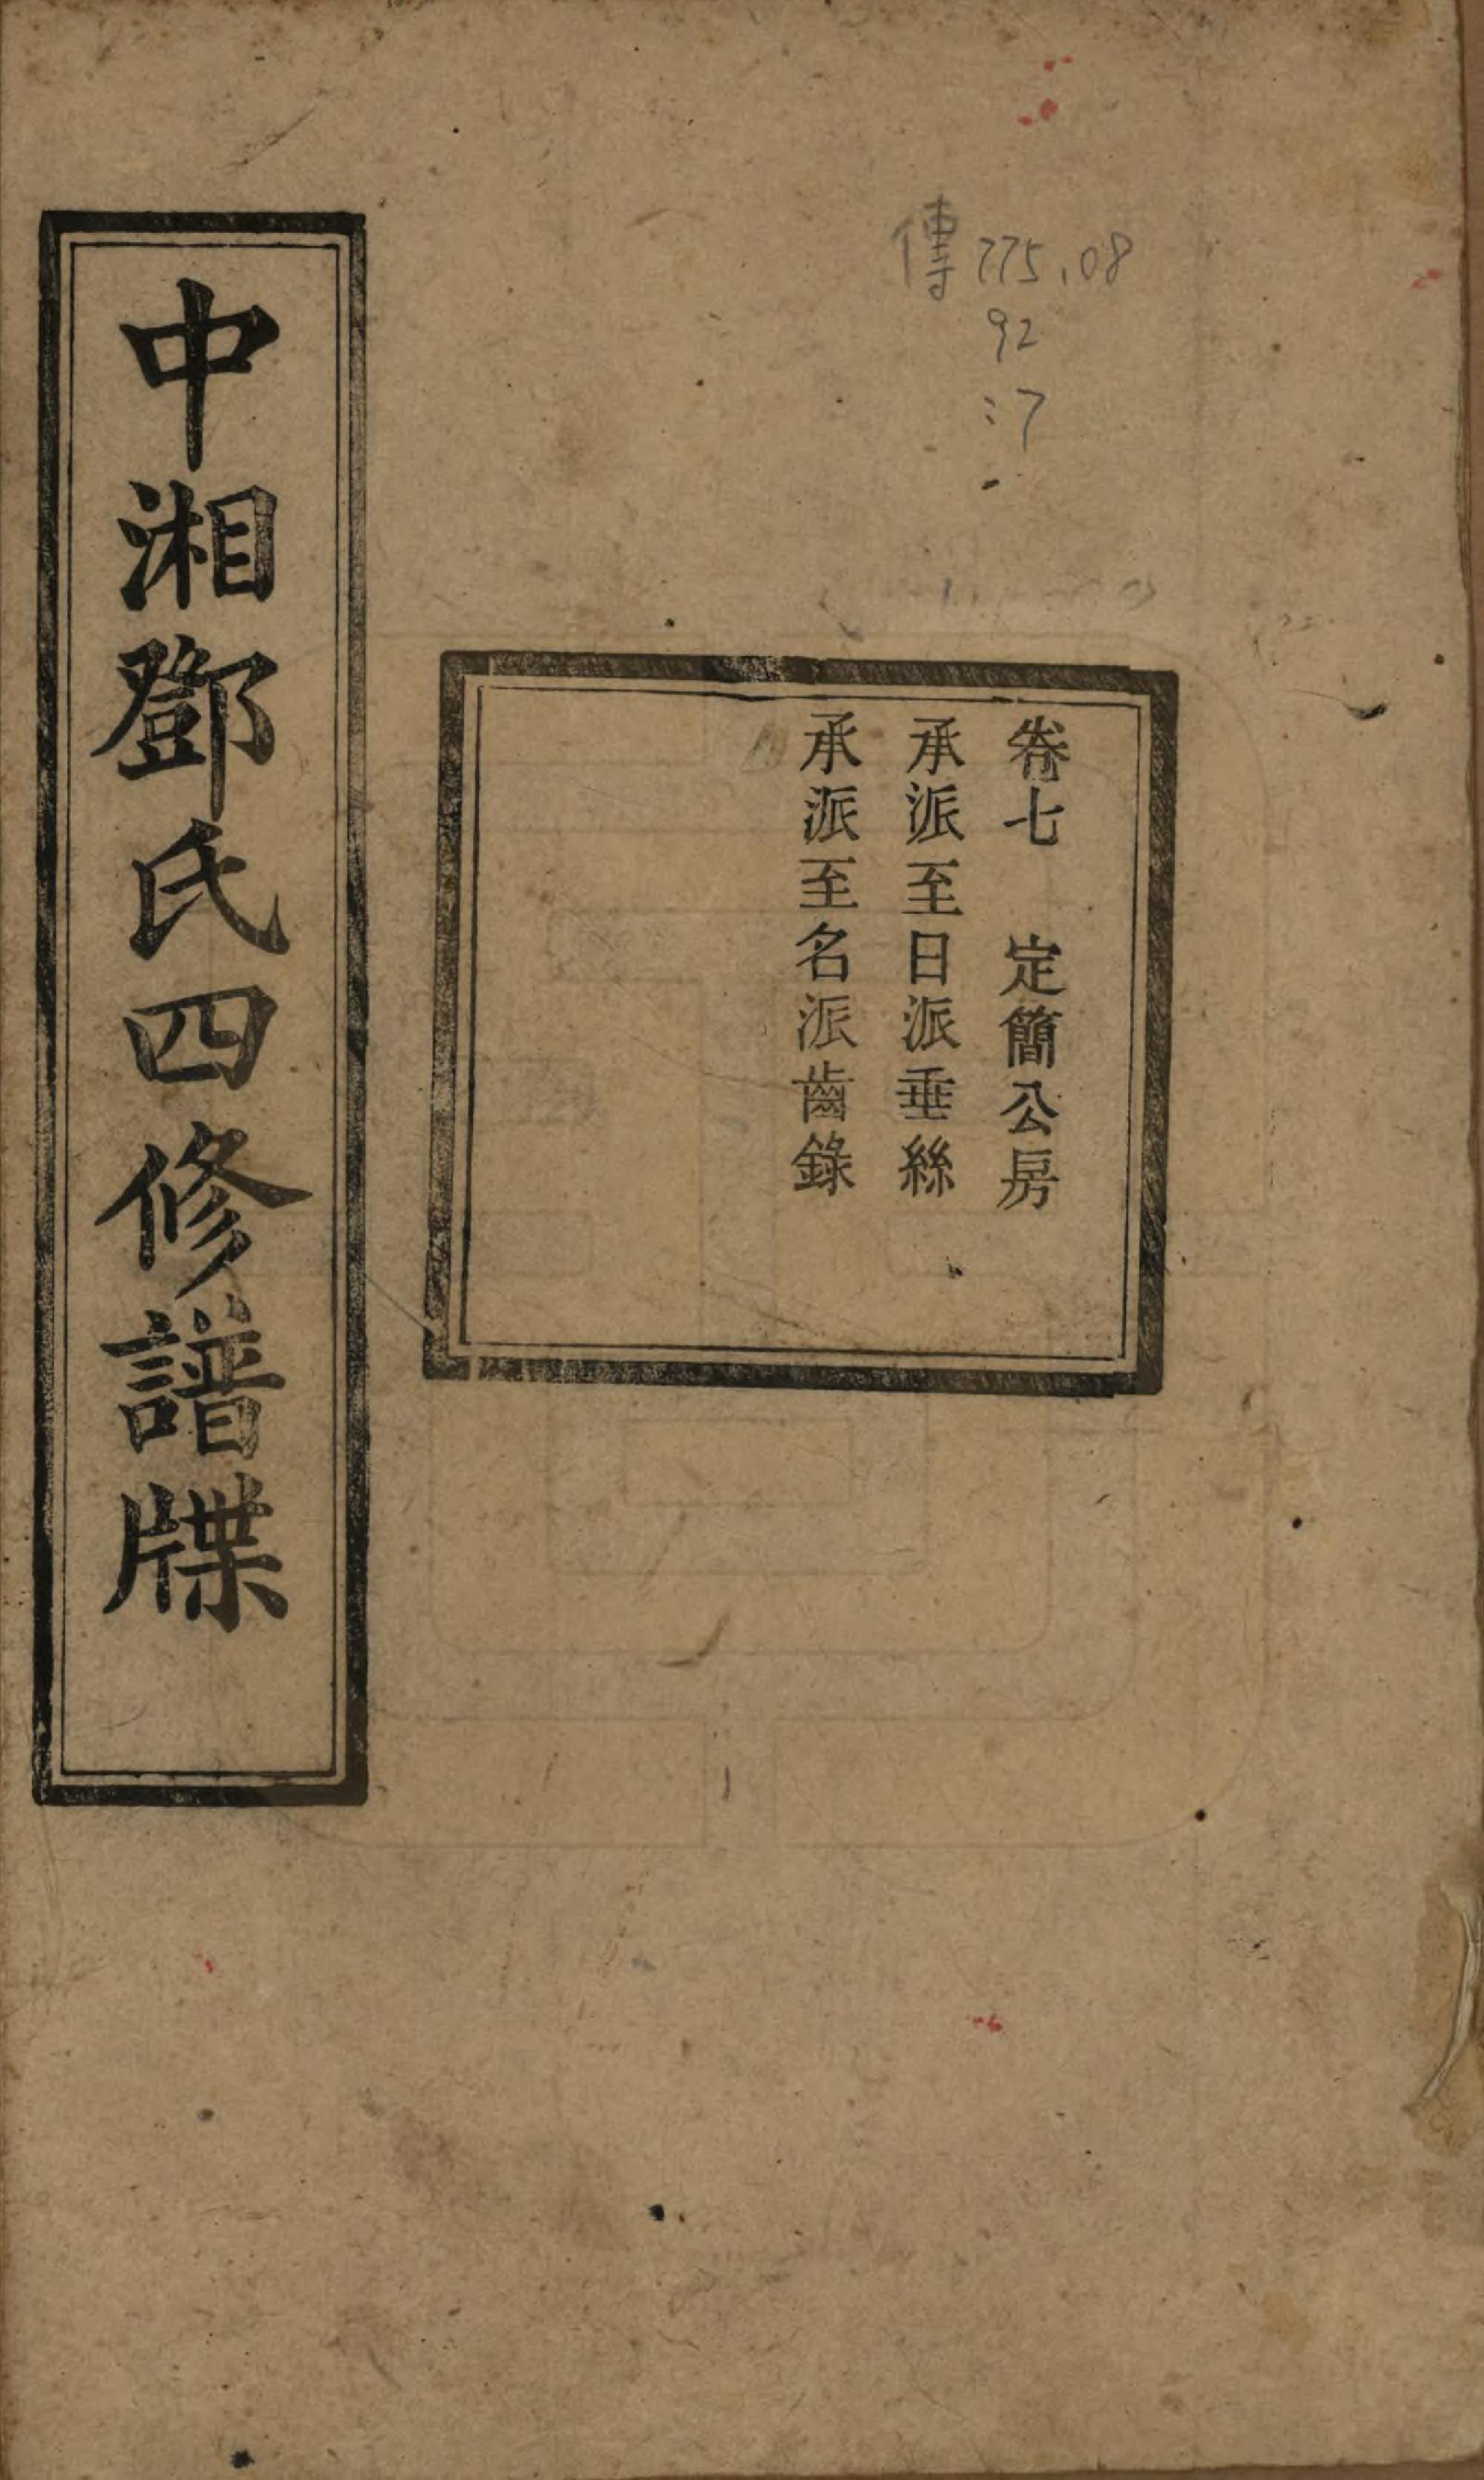 傳 775.08
92
:7
卷七 定簡公房
承派至日派垂絲
承派至名派齒錄
中湘鄧氏四修譜牒